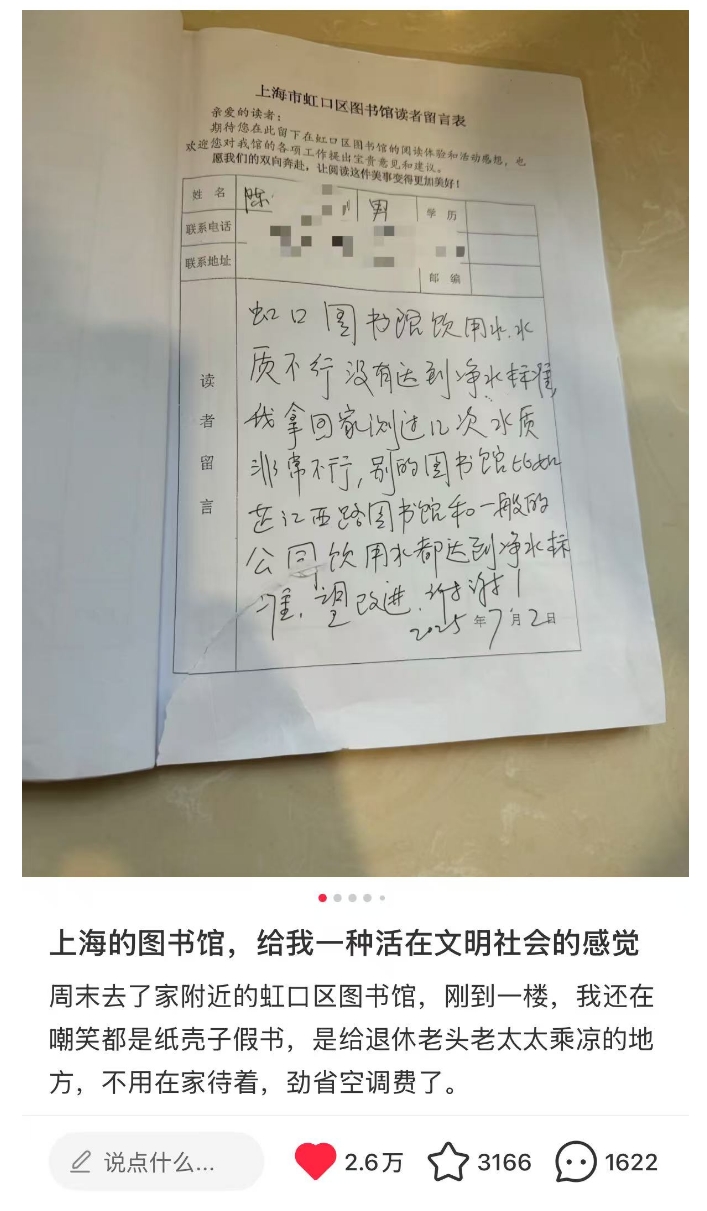 上海市虹口区图书馆读者留言表
亲爱的读者：
期待您在此留下在虹口区图书馆的阅读体验和活动感想，也
欢迎您对我馆的各项工作提出宝贵意见和建议。
愿我们的双向奔赴，让阅读这件美事变得更加美好！
姓 名 陈 男 学 历
联系电话
联系地址 邮 编
读者留言
虹口图书馆饮用水.水
质不行没有达到净水标准,
我拿回家测过几次水质
非常不行,别的图书馆比如
芷江西路图书馆和一般的
公司饮用水都达到净水标
准.望改进.谢谢!
2025年7月2日
上海的图书馆，给我一种活在文明社会的感觉
周末去了家附近的虹口区图书馆，刚到一楼，我还在
嘲笑都是纸壳子假书，是给退休老头老太太乘凉的地
方，不用在家待着，劲省空调费了。
说点什么... 2.6万 3166 1622